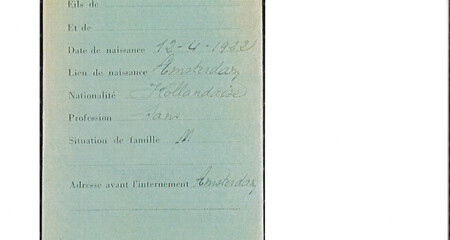 Fils de
Et de
Date de naissance 12-4-1922
Lieu de naissance Amsterdam
Nationalité Hollandaise
Profession sans
Situation de famille M
Adresse avant l'internement Amsterdam